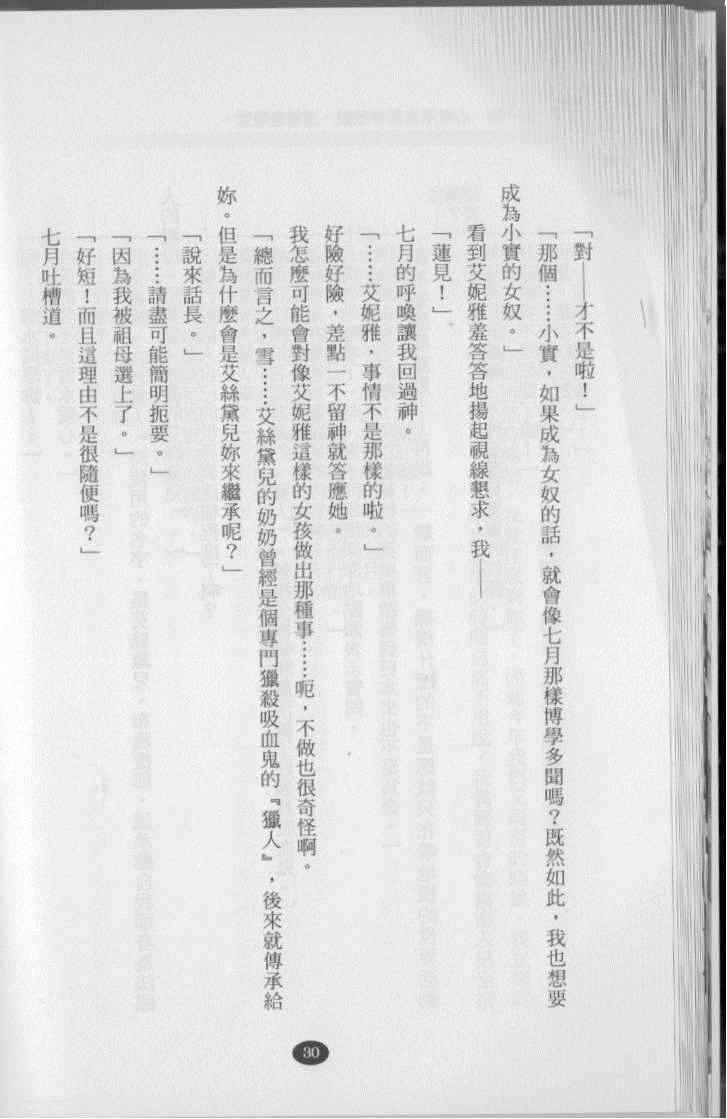 「對——才不是啦！」
「那個……小實，如果成為女奴的話，就會像七月那樣博學多聞嗎？既然如此，我也想要
成為小實的女奴。」
看到艾妮雅羞答答地揚起視線懇求，我——
「蓮見！」
七月的呼喚讓我回過神。
「……艾妮雅，事情不是那樣的啦。」
好險好險，差點一不留神就答應她。
我怎麼可能會對像艾妮雅這樣的女孩做出那種事……呃，不做也很奇怪啊。
「總而言之，雪……艾絲黛兒的奶奶曾經是個專門獵殺吸血鬼的『獵人』，後來就傳承給
妳。但是為什麼會是艾絲黛兒妳來繼承呢？」
「說來話長。」
「……請盡可能簡明扼要。」
「因為我被祖母選上了。」
「好短！而且這理由不是很隨便嗎？」
七月吐槽道。
30